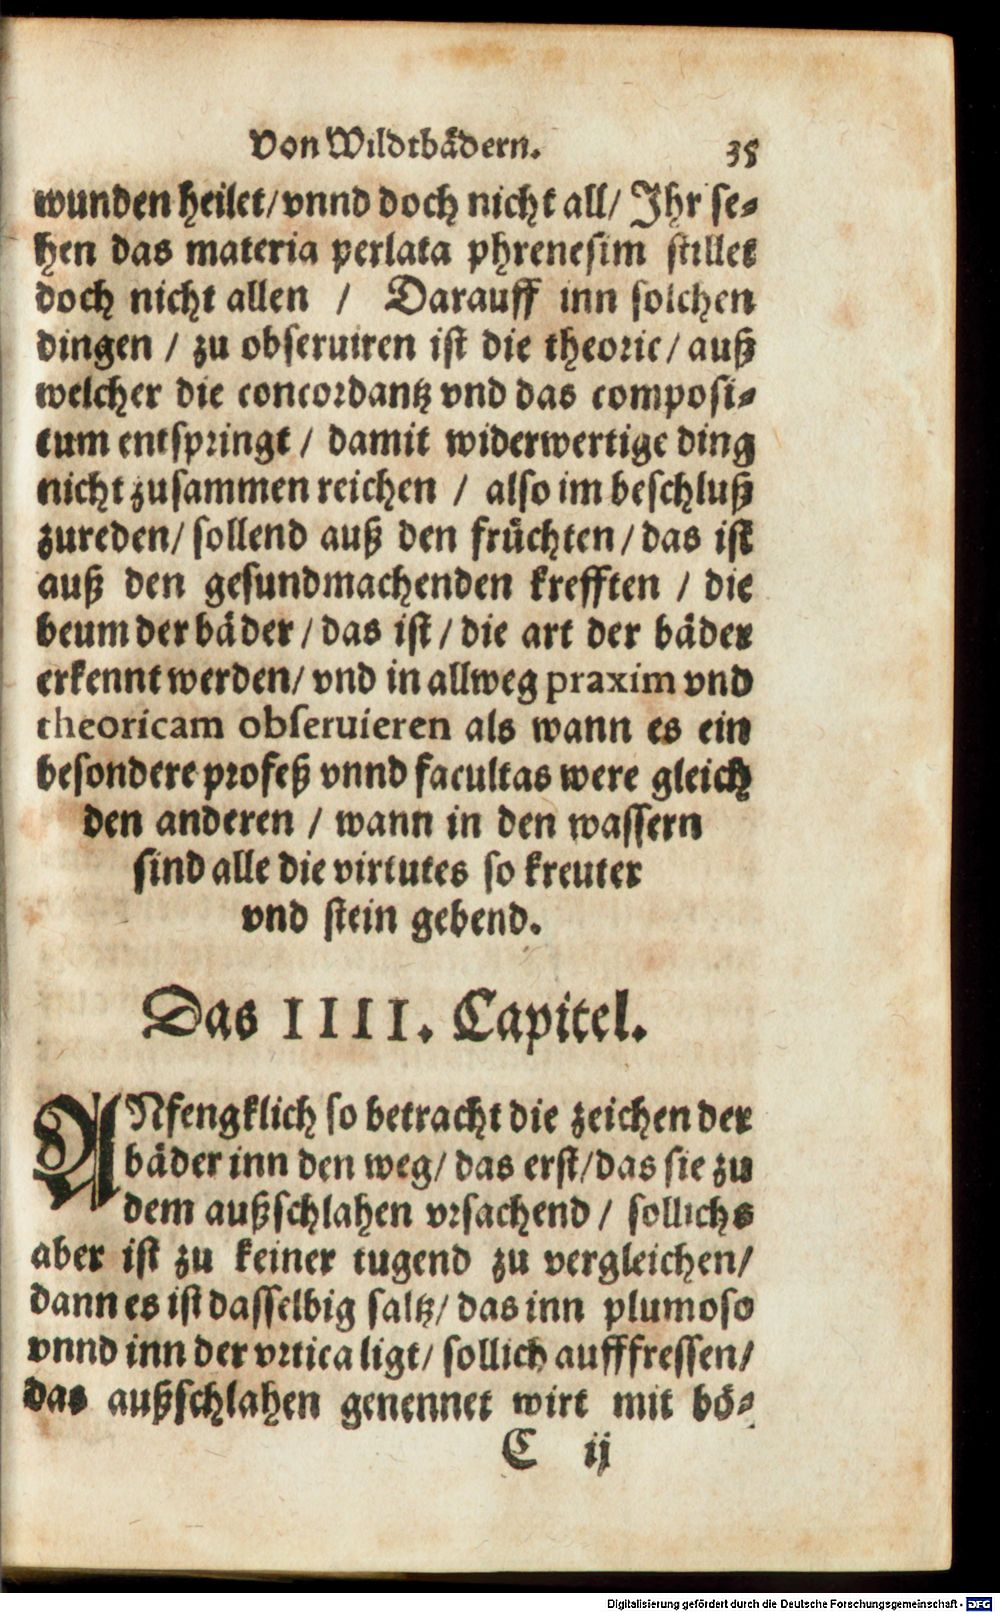 Von Wildtbådern. 35
wunden heilet/ vnnd doch nicht all/ Jhr se⸗
hen das materia perlata phrenesim stillet
doch nicht allen / Darauff inn solchen
dingen / zu obseruiren ist die theoric/ auß
welcher die concordantz vnd das composi⸗
tum entspringt / damit widerwertige ding
nicht zusammen reichen / also im beschluß
zureden/ sollend auß den früchten/ das ist
auß den gesundmachenden krefften / die
beum der båder / das ist / die art der båder
erkennt werden/ vnd in allweg praxim vnd
theoricam obseruieren als wann es ein
besondere profeß vnnd facultas were gleich
den anderen / wann in den wassern
sind alle die virtutes so kreuter
vnd stein gebend.
Das IIII. Capitel.
ANfengklich so betracht die zeichen der
båder inn den weg/ das erst/ das sie zu
dem außschlahen vrsachend / sollichs
aber ist zu keiner tugend zu vergleichen/
dann es ist dasselbig saltz/ das inn plumoso
vnnd inn der vrtica ligt/ sollich aufffressen/
das außschlahen genennet wirt mit bö⸗
C ij
Digitalisierung gefördert durch die Deutsche Forschungsgemeinschaft - DFG